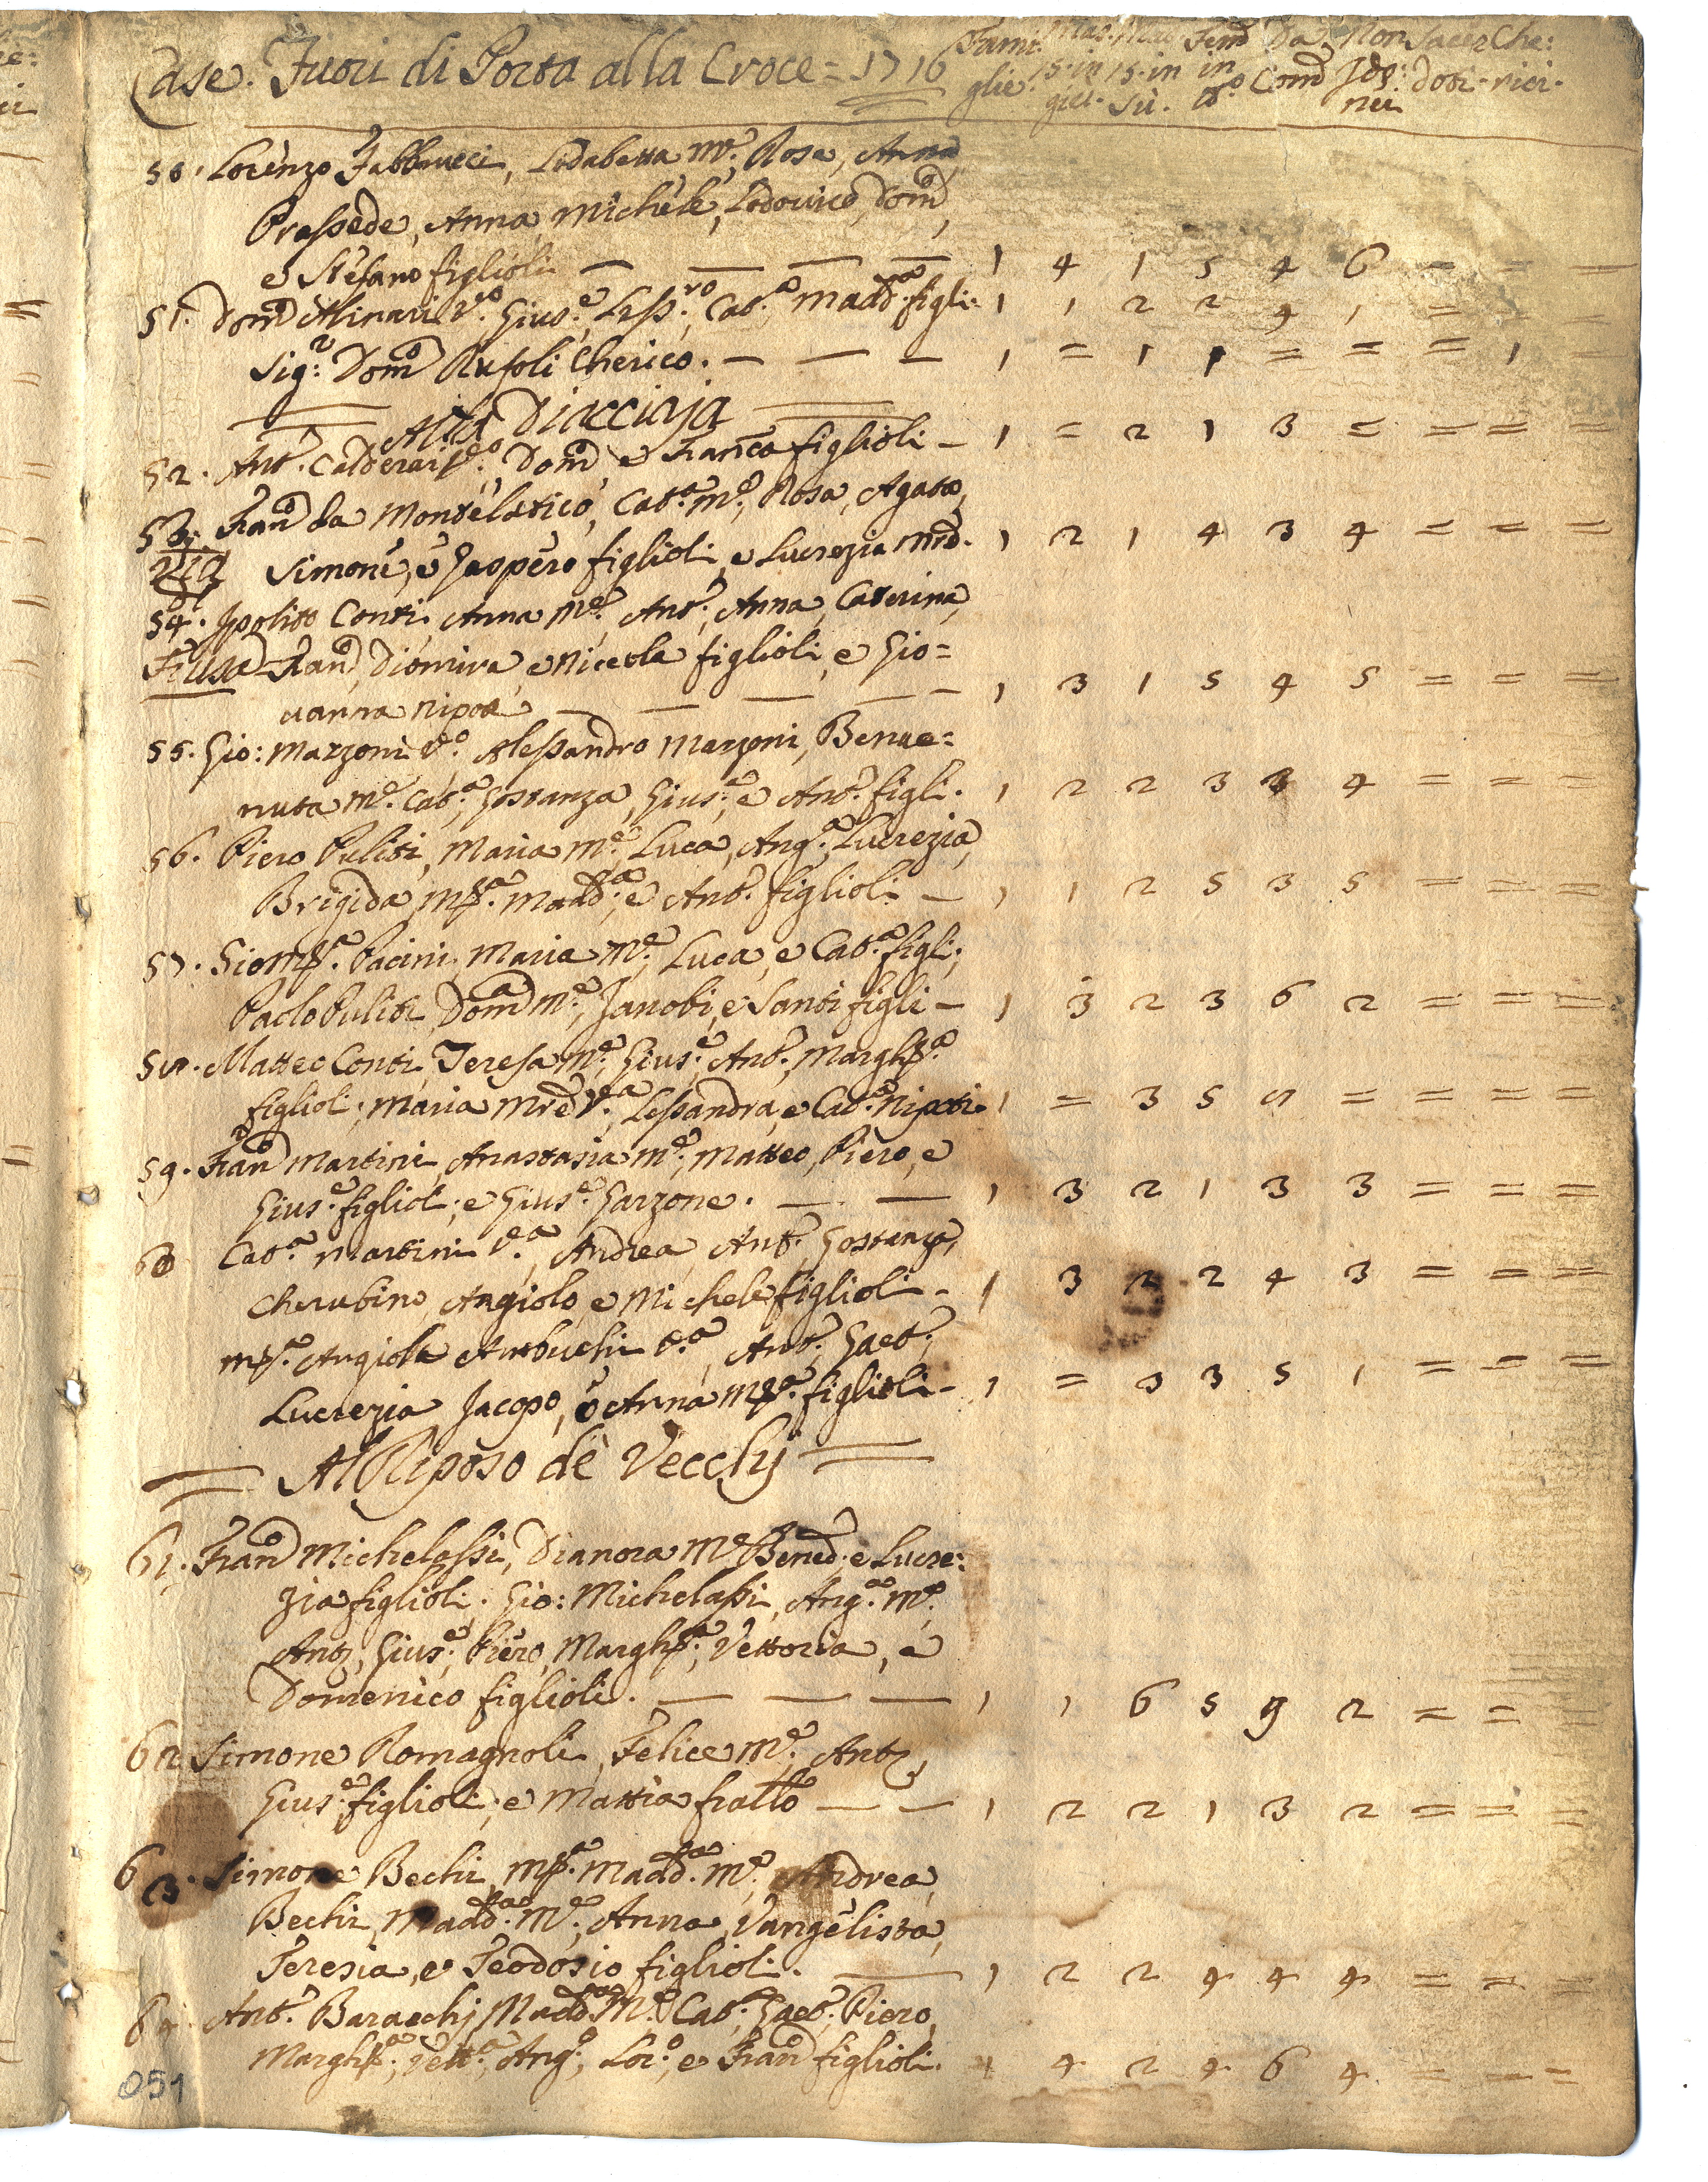 Case. Fuori di Porta alla Croce = 1716 Fami: Mas. Mas. Fem Da Non Sacer Che:
glie. 15. in 15. in in Com Ido: doti. rici.
giù. Sù. to. nei
50. Lorenzo Fabbrucci, Lisabetta me. Rosa, Anna
Prassede, Anna, Michele, Lodovico, Domco,
e Stefano figlioli — — — — 1 4 1 5 4 6 = = =
51. Domco Alinari Vo. Giuse. Lessro., Cata. Maddna. figli: 1 1 2 2 4 1 = =
Sigr: Domco Rufoli Cherico. — — — 1 = 1 1 = = = 1
Alla Diacciaja
52. Anto. Calderai Vo. Domco e Franca figlioli — 1 = 2 1 3 = = = =
53. Franco da Montelatico, Cata. me., Rosa, Agata,
Simone, e Gaspero figlioli, e Lucrezia mrd. 1 2 1 4 3 4 = = =
54. Ipolito Conti, Anna me., Anto., Anna, Caterina,
Franco, Diomira, e Niccola figlioli, e Gio=
vanna nipote — — — — 1 3 1 5 4 5 = = =
55. Gio: Mazzoni Vo. Alessandro Mazzoni, Benve=
nuta me. Cata., Gostanza, Giuse., e Anto. figli. 1 2 2 3 3 4 = = =
56. Piero Puliti, Maria me., Luca, Anga., Lucrezia,
Brigida, Mra. Maddna., e Anto. figlioli — 1 1 2 5 3 5 = = =
57. Giombta. Pacini, Maria me., Luca, e Cata. figli;
Paolo Puliti, Domca me., Zanobi, e Santi figli — 1 3 2 3 6 2 = = =
58. Matteo Conti, Teresa me., Giuse., Anto., Marghta.
figlioli; Maria Mre Va., Lessandra, e Cata. Nipoti. 1 = 3 5 8 = = = =
59. Franco Martini, Anastasia me., Matteo, Piero, e
Giuse. figlioli; e Giuse. Garzone. — — 1 3 2 1 3 3 = = =
60 Cata. Martini Va., Andrea, Anto., Gostanza,
Cherubino, Angiolo, e Michele figlioli. — 1 3 2 2 4 3 = = =
Mra. Angiola Va., Anto., Gaeto.,
Lucrezia, Jacopo, e Anna Mra. figlioli — 1 = 3 3 5 1 = = =
Al Riposo de' Vecchj
61. Franco Michelassi, Dianora me. Bened., e Lucre:
zia figlioli. Gio: Michelassi, Anga. me.
Anto, Giuse., Piero, Marghta., Vettoria, e
Domenico figlioli. — — — 1 1 6 5 9 2 = =
62 Simone Romagnoli, Felice me., Anto,
Giuse. figlioli; e Mattia fratllo — — 1 2 2 1 3 2 = = =
63. Simone Bechi, Mra. Maddna. me., Andrea
Bechi, Maddna. me., Anna, Vangelista,
Teresia, e Teodosio figlioli. — 1 2 2 4 4 4 = = =
64. Anto. Baracchj, Maddna me. Cat., Gaeto., Piero,
Marghta., Vetta., Ango., Loro., e Franco figlioli. 1 4 2 4 6 4 = = =
051